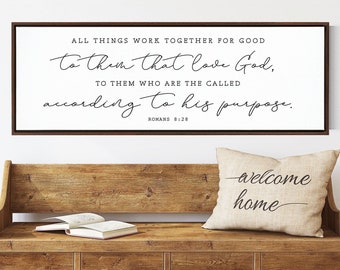 ALL THINGS WORK TOGETHER FOR GOOD
to them that love God,
TO THEM WHO ARE THE CALLED
according to his purpose.
ROMANS 8:28
welcome
home